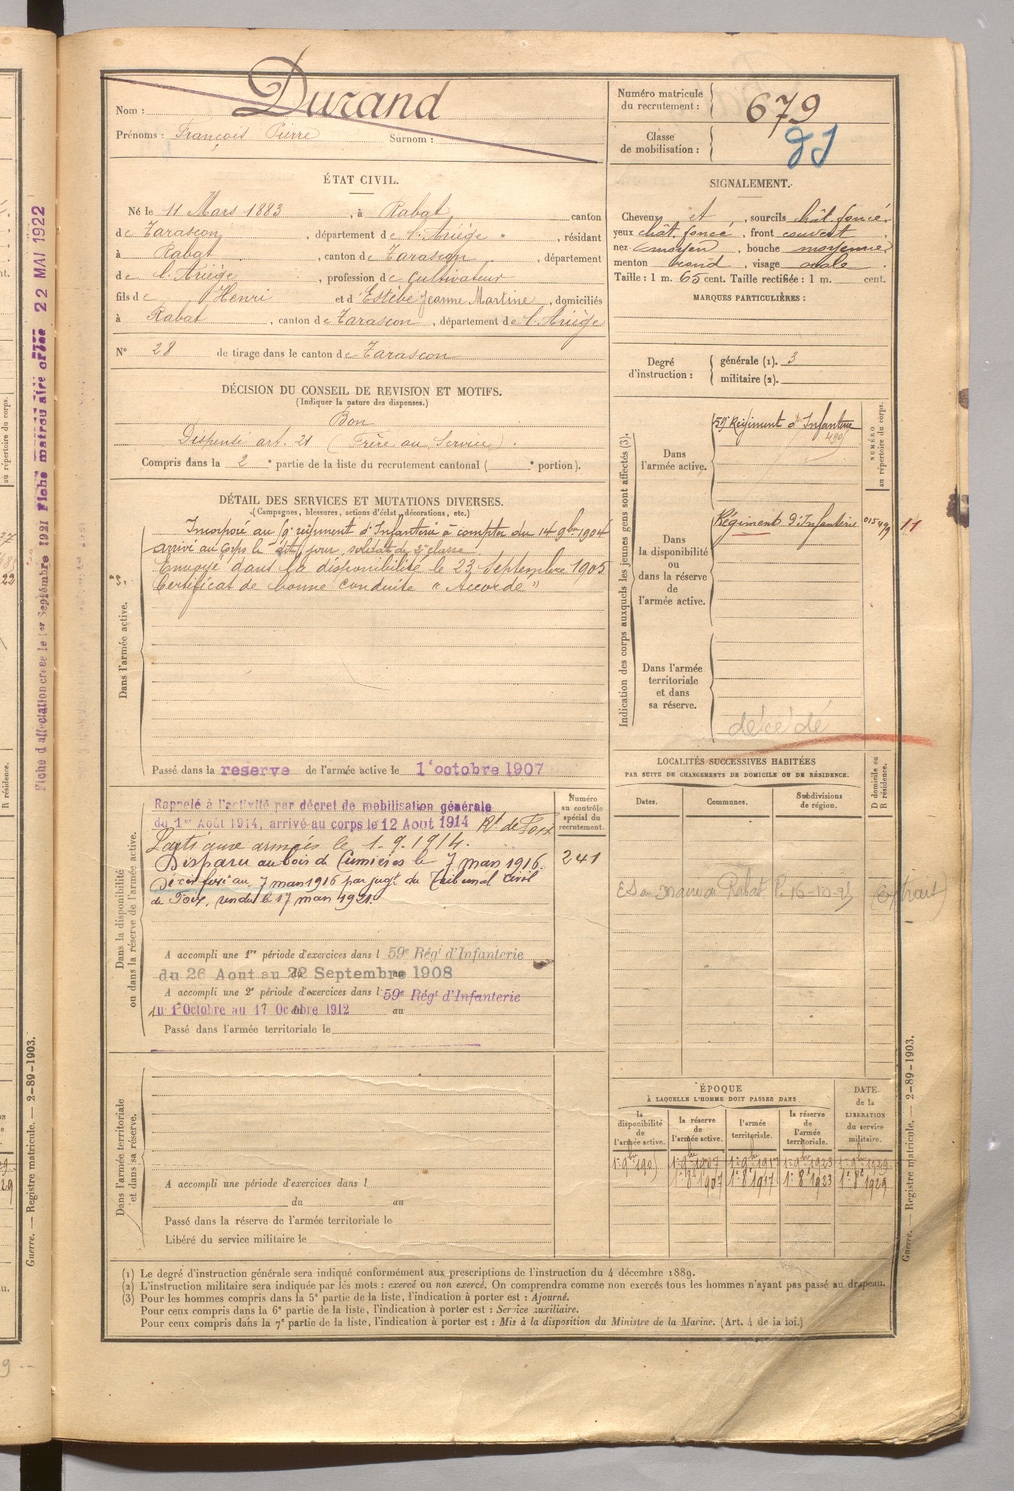 Nom : Durand
Prénoms : François Pierre Surnom :
Numéro matricule
du recrutement : 679
Classe
de mobilisation :
ÉTAT CIVIL.
Né le 11 Mars 1883, à Rabat canton
de Tarascon, département de l'Ariège, résidant
à Rabat, canton de Tarascon, département
de l'Ariège, profession de Cultivateur
fils de Henri et d Estèbe Jeanne Martine, domiciliés
à Rabat, canton de Tarascon, département de l'Ariège
N° 28 de tirage dans le canton de Tarascon
SIGNALEMENT.
Cheveux et, sourcils chât. foncé,
yeux chât. foncé, front couvert,
nez moyen, bouche moyenne
menton rond, visage ovale.
Taille : 1 m. 65 cent. Taille rectifiée : 1 m. cent.
MARQUES PARTICULIÈRES :
Degré
d'instruction :
générale (1). 3
militaire (2).
DÉCISION DU CONSEIL DE REVISION ET MOTIFS.
(Indiquer la nature des dispenses.)
Bon
Dispensé art. 21 (Frère au Service).
Compris dans la 2e partie de la liste du recrutement cantonal ( e portion).
DÉTAIL DES SERVICES ET MUTATIONS DIVERSES.
(Campagnes, blessures, actions d'éclat, décorations, etc.)
Dans l'armée active.
Incorporé au régiment d'Infanterie à compter du 14 9bre 1904
arrivé au Corps le dit jour, soldat de 2e classe.
Envoyé dans la disponibilité le 23 Septembre 1905
Certificat de bonne conduite "Accordé"
Passé dans la reserve de l'armée active le 1e octobre 1907
Indication des corps auxquels les jeunes gens sont affectés (3).
Dans
l'armée active.
Régiment d'Infanterie
NUMÉRO
au répertoire du corps.
Dans
la disponibilité
ou
dans la réserve
de
l'armée active.
Régiment d'Infanterie
11
Dans l'armée
territoriale
et dans
sa réserve.
décédé
Dans la disponibilité
ou dans la réserve de l'armée active.
Rappelé à l'activité par décret de mobilisation générale
du 1er Août 1914, arrivé au corps le 12 Aout 1914
Parti aux armées le 1.9.1914.
Disparu au bois de Cumières le 7 mars 1916.
Décès fixé au 7 mars 1916 par jugt du Tribunal civil
de Foix, rendu le 17 mars 1921.
Numéro
au contrôle
spécial du
recrutement.
241
A accompli une 1re période d'exercices dans l 59e Régt d'Infanterie
du 26 Aout au 22 Septembre 1908
A accompli une 2e période d'exercices dans l 59e Régt d'Infanterie
du 1e Octobre au 17 Octobre 1912 au
Passé dans l'armée territoriale le
LOCALITÉS SUCCESSIVES HABITÉES
PAR SUITE DE CHANGEMENTS DE DOMICILE OU DE RÉSIDENCE.
Dates.
Communes.
Subdivisions
de région.
D domicile ou
R résidence.
mairie Rabat
Dans l'armée territoriale
et dans sa réserve.
A accompli une période d'exercices dans l
du au
Passé dans la réserve de l'armée territoriale le
Libéré du service militaire le
ÉPOQUE
À LAQUELLE L'HOMME DOIT PASSER DANS
la
disponibilité
de
l'armée active.
la réserve
de
l'armée active.
l'armée
territoriale.
la réserve
de
l'armée
territoriale.
DATE
de la
LIBÉRATION
du service
militaire.
1er 9bre 1907 1er 9bre 1917 1er 9bre 1923 1er 9bre 1929
1er 8e 1907 1er 8e 1917 1er 8e 1923 1er 8e 1929
(1) Le degré d'instruction générale sera indiqué conformément aux prescriptions de l'instruction du 4 décembre 1889.
(2) L'instruction militaire sera indiquée par les mots : exercé ou non exercé. On comprendra comme non exercés tous les hommes n'ayant pas passé au drapeau.
(3) Pour les hommes compris dans la 5e partie de la liste, l'indication à porter est : Ajourné.
Pour ceux compris dans la 6e partie de la liste, l'indication à porter est : Service auxiliaire.
Pour ceux compris dans la 7e partie de la liste, l'indication à porter est : Mis à la disposition du Ministre de la Marine. (Art. 4 de la loi.)
Guerre. — Registre matricule. — 2-89-1903.
Guerre. — Registre matricule. — 2-89-1903.
Fiche d'affectation créée le 1er Septembre 1921 Fiche matriculaire créée 22 MAI 1922
au répertoire du corps.
R résidence.